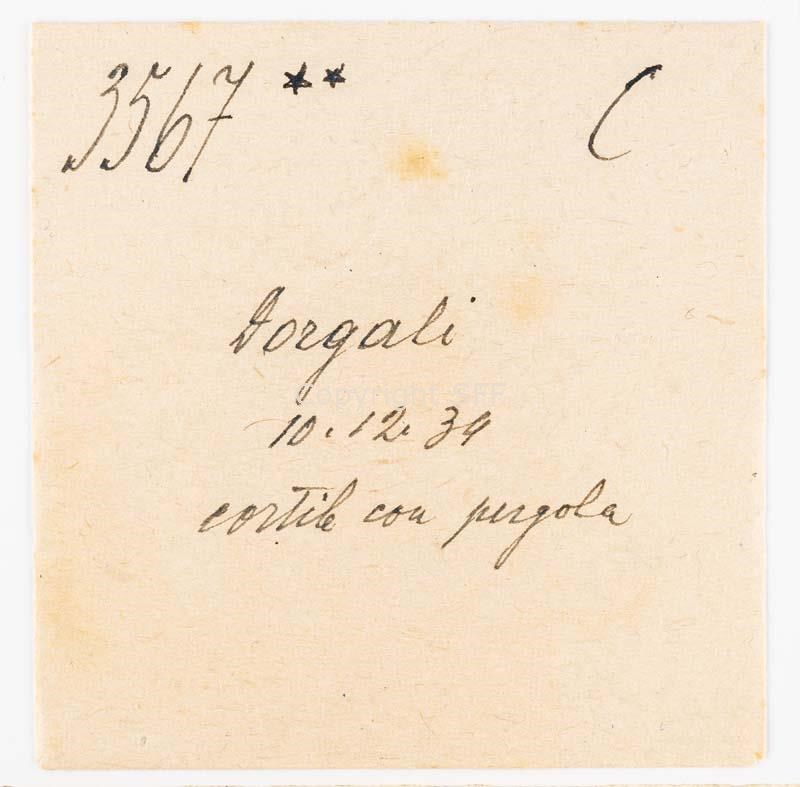 3567 ** C
Dorgali
Copyright SFF
10.12.39
cortile con pergola